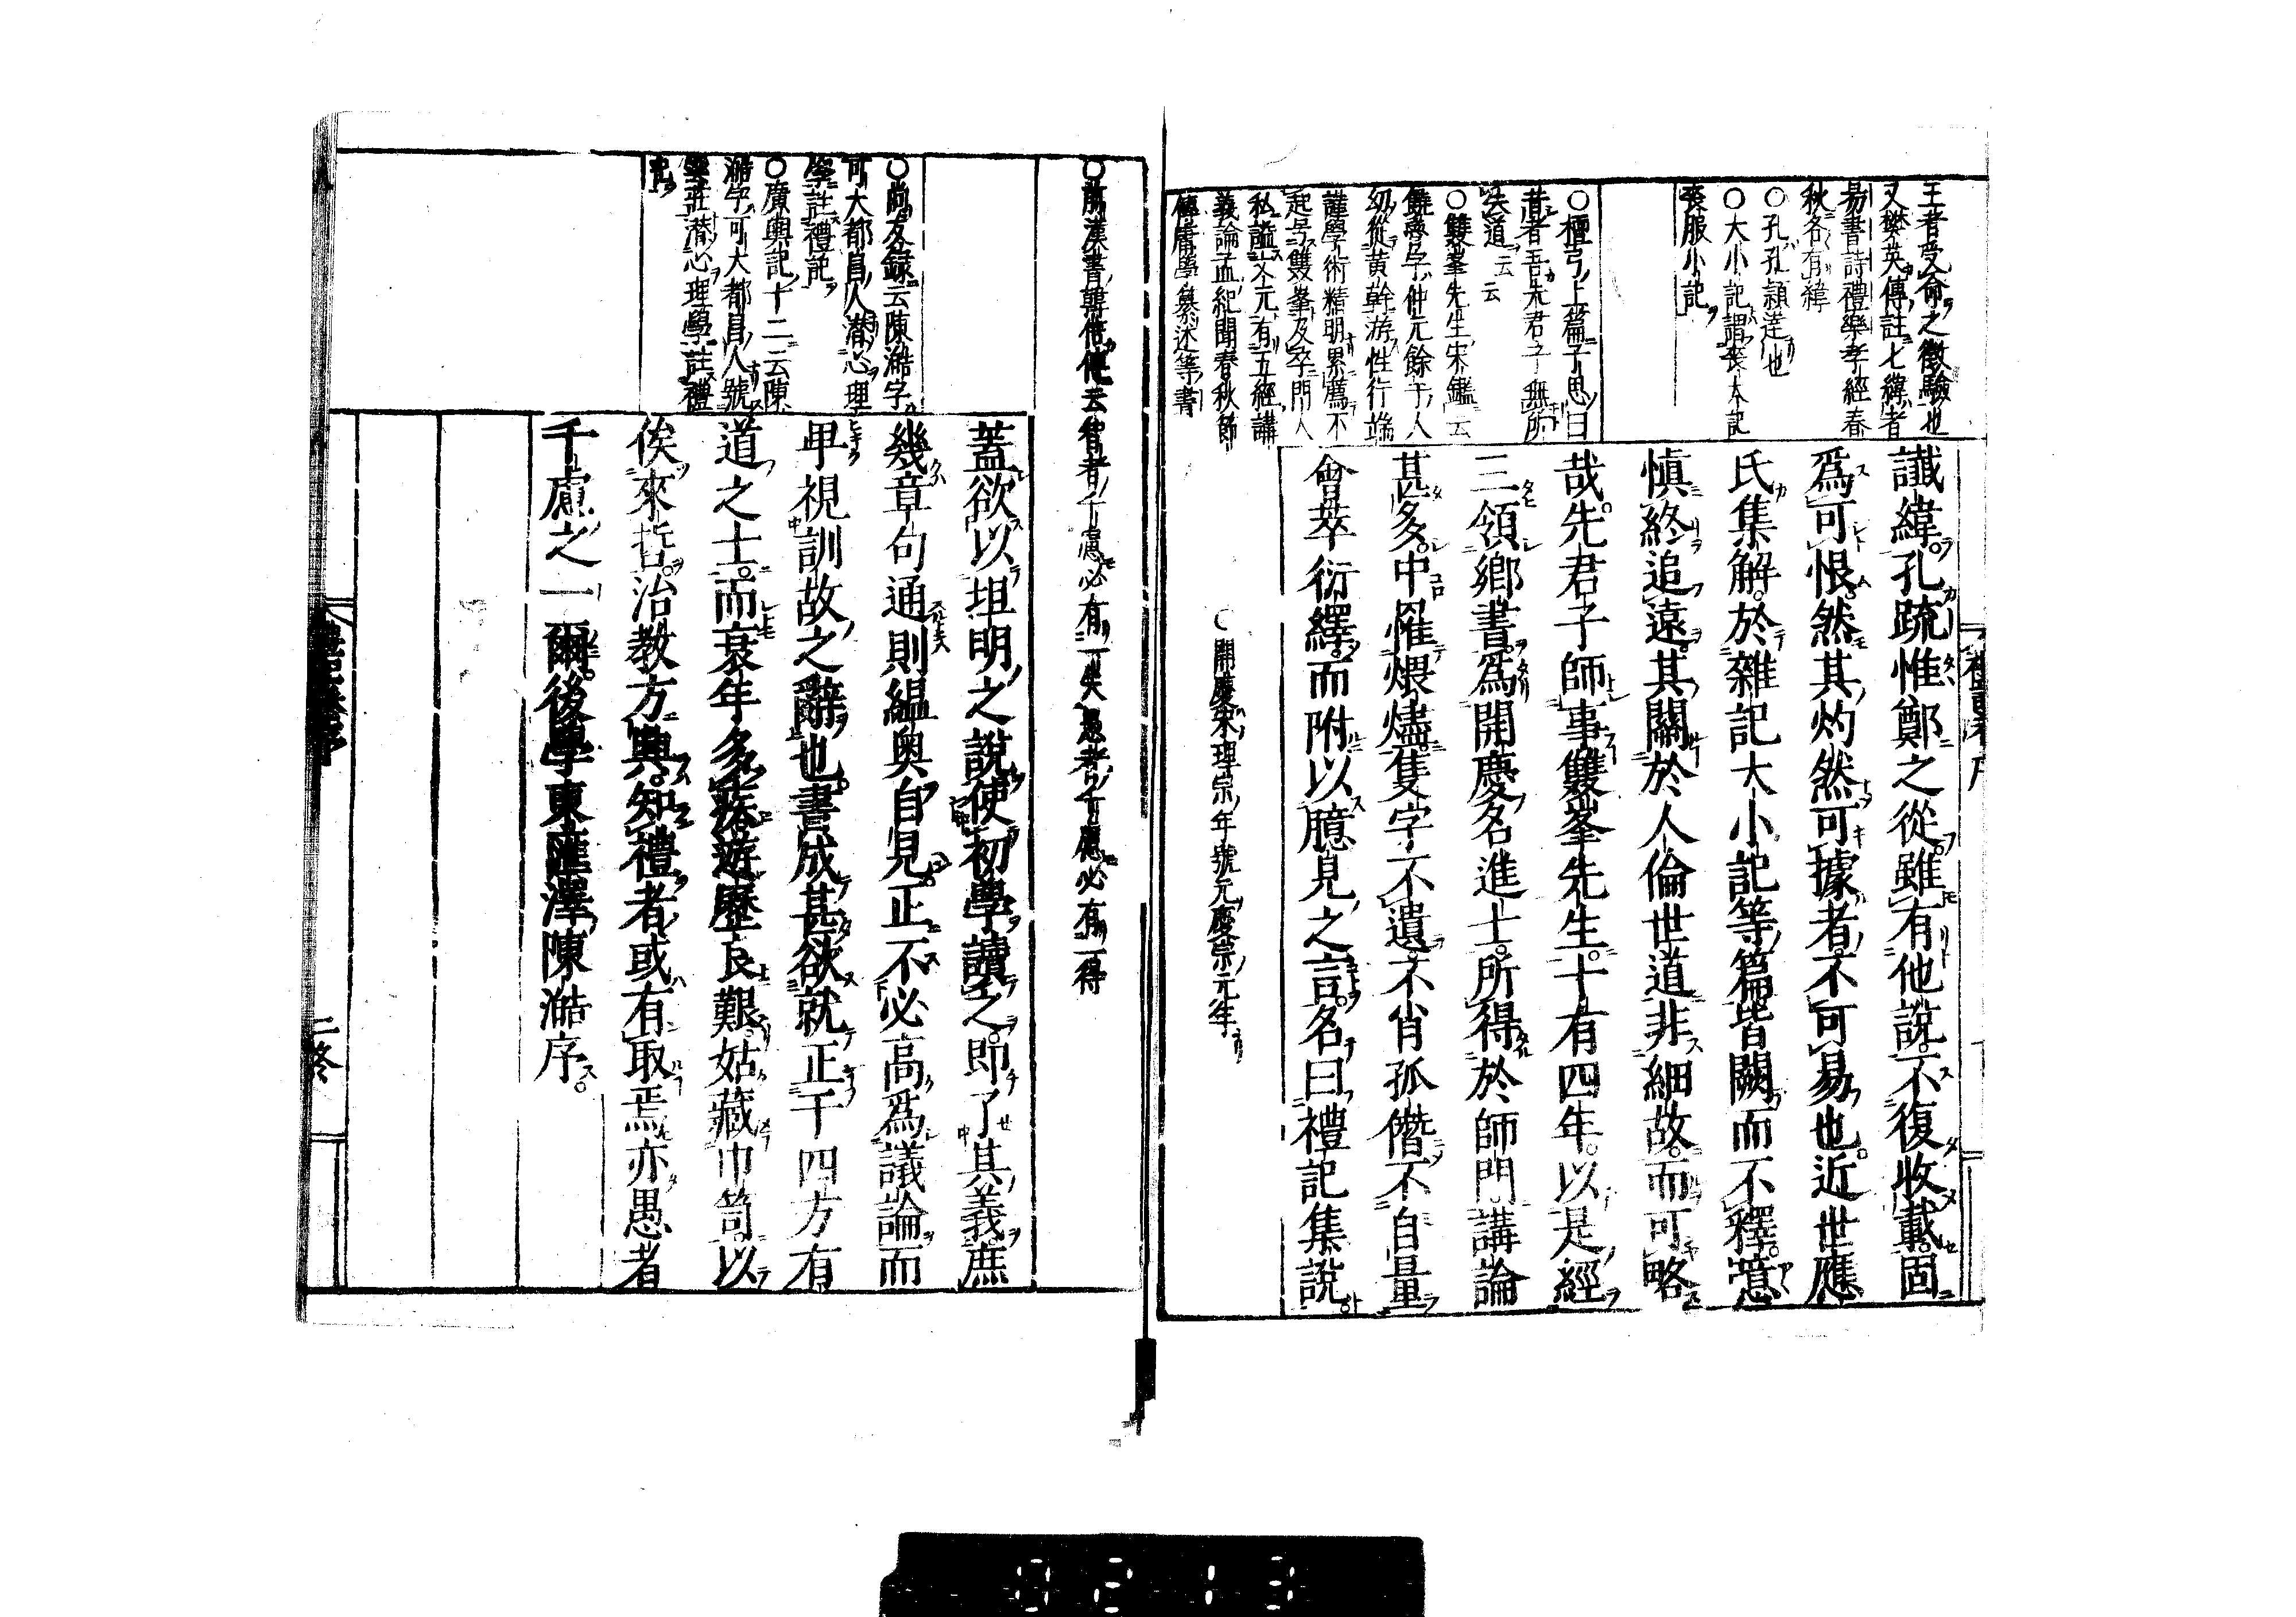 王者受命之徵驗也
又樊英傳註七緯者
易書詩禮樂孝經春
秋各有緯
○孔孔頴達也
○大小記謂喪大記
喪服小記
○檀弓上篇子思曰
昔者吾先君子無所
失道云云
○雙峯先生宋鑑云
饒魯字仲元餘干人
幼從黄幹游性行端
謹學術精明累薦不
起号雙峯及卒門人
私謚文元有五經講
義論孟紀聞春秋節
傳庸學纂述等書
讖緯孔疏惟鄭之從雖有他說不復收載固
爲可恨然其灼然可據者不可易也近世應
氏集解於雜記大小記等篇皆闕而不釋噫
愼終追遠其關於人倫世道非細故而可略
哉先君子師事雙峯先生十有四年以是經
三領鄉書爲開慶名進士所得於師門講論
甚多中罹煨燼隻字不遺不肖孤僭不自量
會萃衍繹而附以臆見之言名曰禮記集說
○開慶宋理宗年號元慶宗元年
○前漢書韓信傳云智者千慮必有一失愚者千慮必有一得
○尚友録云陳澔字
可大都昌人潜心理
學註禮記
○廣輿記十二云陳
澔字可大都昌人號
雲莊潜心理學註禮
記
蓋欲以坦明之說使初學讀之即了其義庶
幾章句通則縕奥自見正不必高爲議論而
卑視訓故之辭也書成甚欲就正于四方有
道之士而衰年多疾遊歷良艱姑藏巾笥以
俟來哲治教方興知禮者或有取焉亦愚者
千慮之一爾後學東匯澤陳澔序
二終